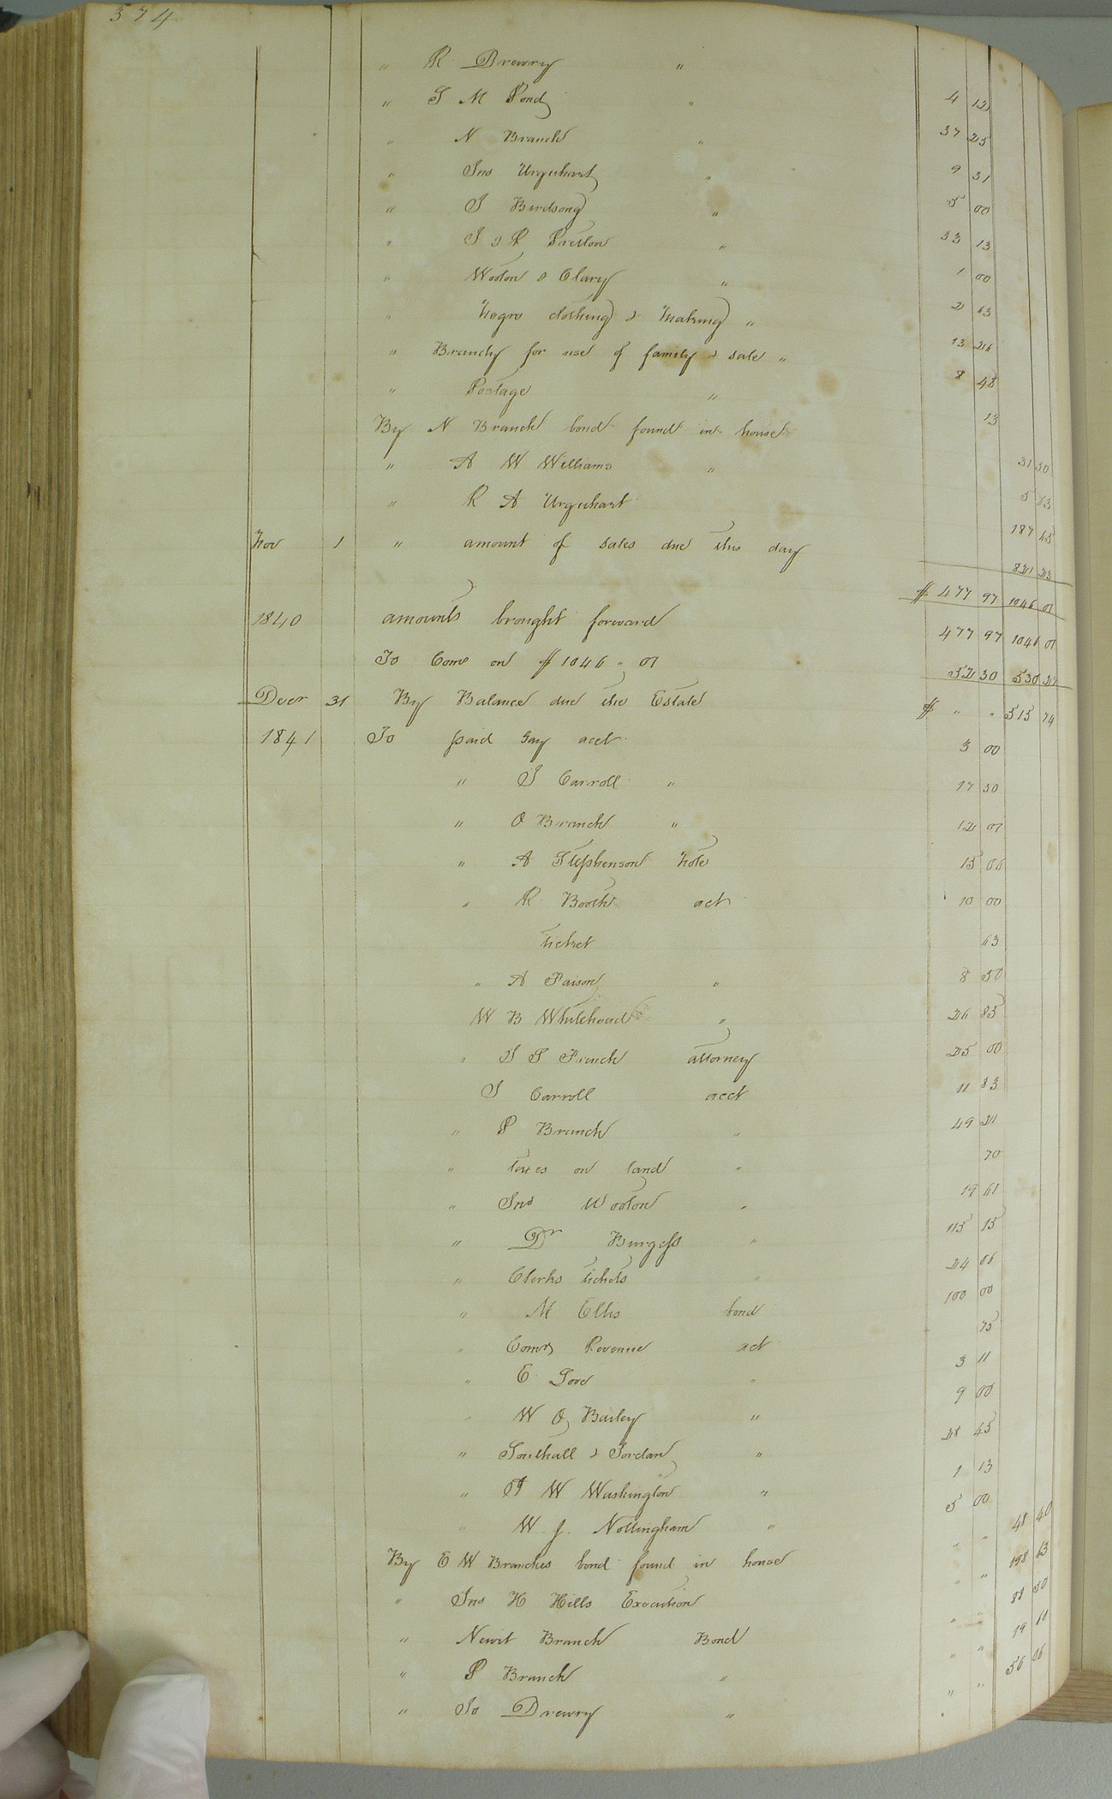 574
" R Drewry "
" S M Pond " 4 12
" N Branch " 37 25
" Jno Urquhart " 9 31
" J Birdsong " 5 00
" J & R Pretlow " 33 13
" Wooton & Clary " 1 00
" Negro clothing & making " 2 63
" Brandy for use of family & sale " 13 26
" Postage " 8 48
By N Branch bond found in house 13
" A W Williams " 31 50
" R A Urquhart 5 63
Nov 1 " amount of sales due this day 187 45
821 23
$ 477 97 1046 01
1840 amounts brought forward 477 97 1046 01
To Coms on $ 1046 - 01 52 30 530 27
Decr 31 By Balance due the Estate $ " " 515 74
1841 To paid Gay acct 3 00
" J Carroll " 17 50
" O Branch " 12 07
" A Stephenson Note 15 06
" R Booth act 10 00
ticket 63
" A Faison " 8 50
W B Whitehead " 26 85
" S S French attorney 25 00
J Carroll acct 11 83
" P Branch " 49 21
" taxes on land " 70
" Jno Wooton " 19 61
" Dr Burgess " 115 15
" Clerks tickets " 24 06
" M Ellis bond 100 00
" Comrs Revenue act 75
" E Gore " 3 11
" W O Bailey " 9 00
" Southall & Jordan " 28 45
" W Washington " 1 13
" W J Nottingham " 5 00
By E W Branches bond found in house " " 48 40
" Jno H Hills Execution " " 198 63
" Newit Branch Bond " " 88 50
" P Branch " " " 19 11
" To Drewry " " " 56 06